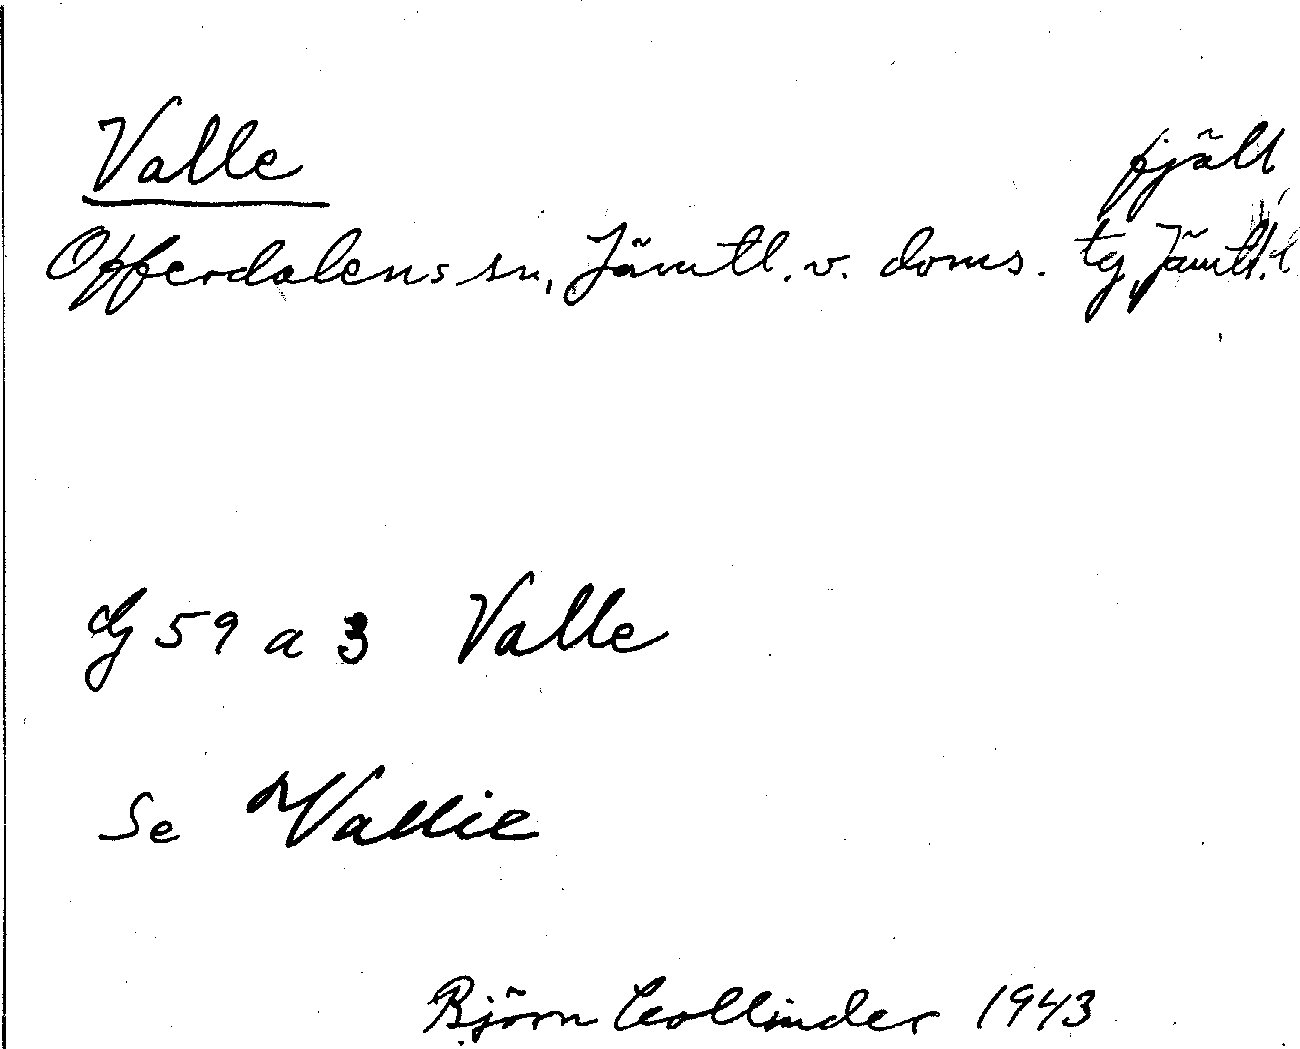 Valle fjäll
Offerdalens sn, Jämtl. v. doms. tg, Jämtl. l
59 a 3 Valle
Se Vallie
Björn Collinder 1943